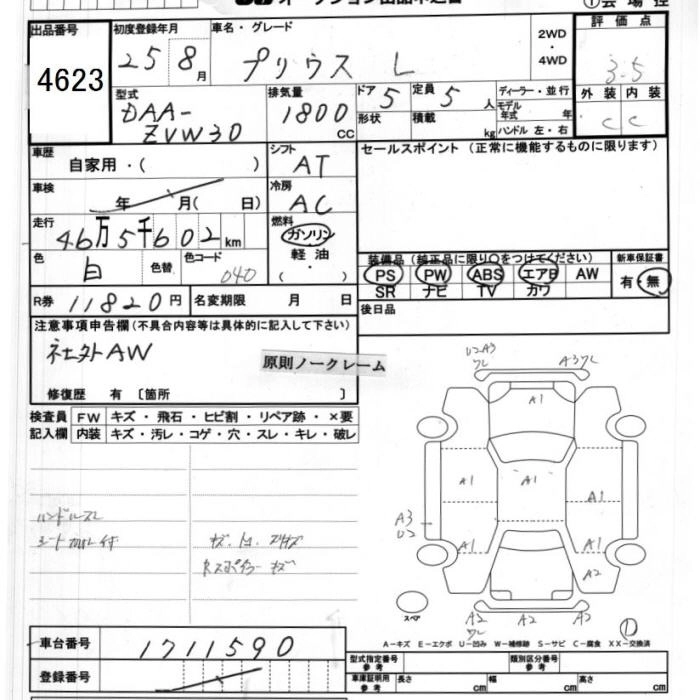 出品番号
4623
初度登録年月
25 8月
車名・グレード
プリウス L
2WD
・
4WD
評価点
3.5
型式
DAA-
ZVW30
排気量
1800
CC
ドア
5
定員
5
人
形状
積載
kg
ディーラー・並行
モデル
年式
年
ハンドル 左・右
外装
内装
C
C
車歴
自家用・( )
シフト
AT
セールスポイント (正常に機能するものに限ります)
車検
年 月( 日)
冷房
AC
走行
46万5千602km
燃料
ガソリン
軽油
・
( )
色
白
色替
色コード
040
装備品 (純正品に限り○をつけてください)
PS PW ABS エアB AW
SR ナビ TV カワ
新車保証書
有・無
R券
11820円
名変期限 月 日
後日品
注意事項申告欄(不具合内容等は具体的に記入して下さい)
社外AW
原則ノークレーム
修復歴 有 〔箇所 〕
検査員
記入欄
FW
キズ・飛石・ヒビ割・リペア跡・×要
内装
キズ・汚レ・コゲ・穴・スレ・キレ・破レ
ハンドルスレ
U2A3
ワレ
A3ワレ
A1
A1
A1
A1
A3
U2
A1
A1
A2
A2
ワレ
A2
A2
スペア
A-キズ E-エクボ U-凹み W-補修跡 S-サビ C-腐食 XX-交換済
車台番号
1711590
登録番号
型式指定番号
参考
類別区分番号
参考
車庫証明用
参考
長さ cm
幅 cm
高さ cm